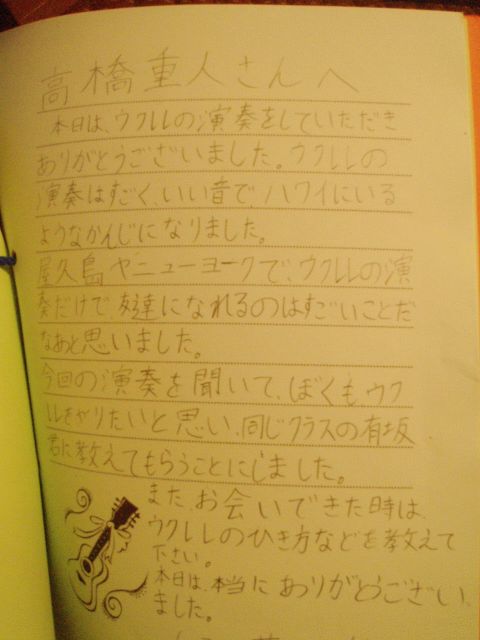 高橋重人さんへ
本日は、ウクレレの演奏をしていただき
ありがとうございました。ウクレレの
演奏はすごく、いい音で、ハワイにいる
ようなかんじになりました。
屋久島やニューヨークで、ウクレレの演
奏だけで、友達になれるのはすごいことだ
なあと思いました。
今回の演奏を聞いて、ぼくもウク
レレをやりたいと思い、同じクラスの有坂
君に教えてもらうことにしました。
また、お会いできた時は、
ウクレレのひき方などを教えて
下さい。
本日は、本当にありがとうござい
ました。